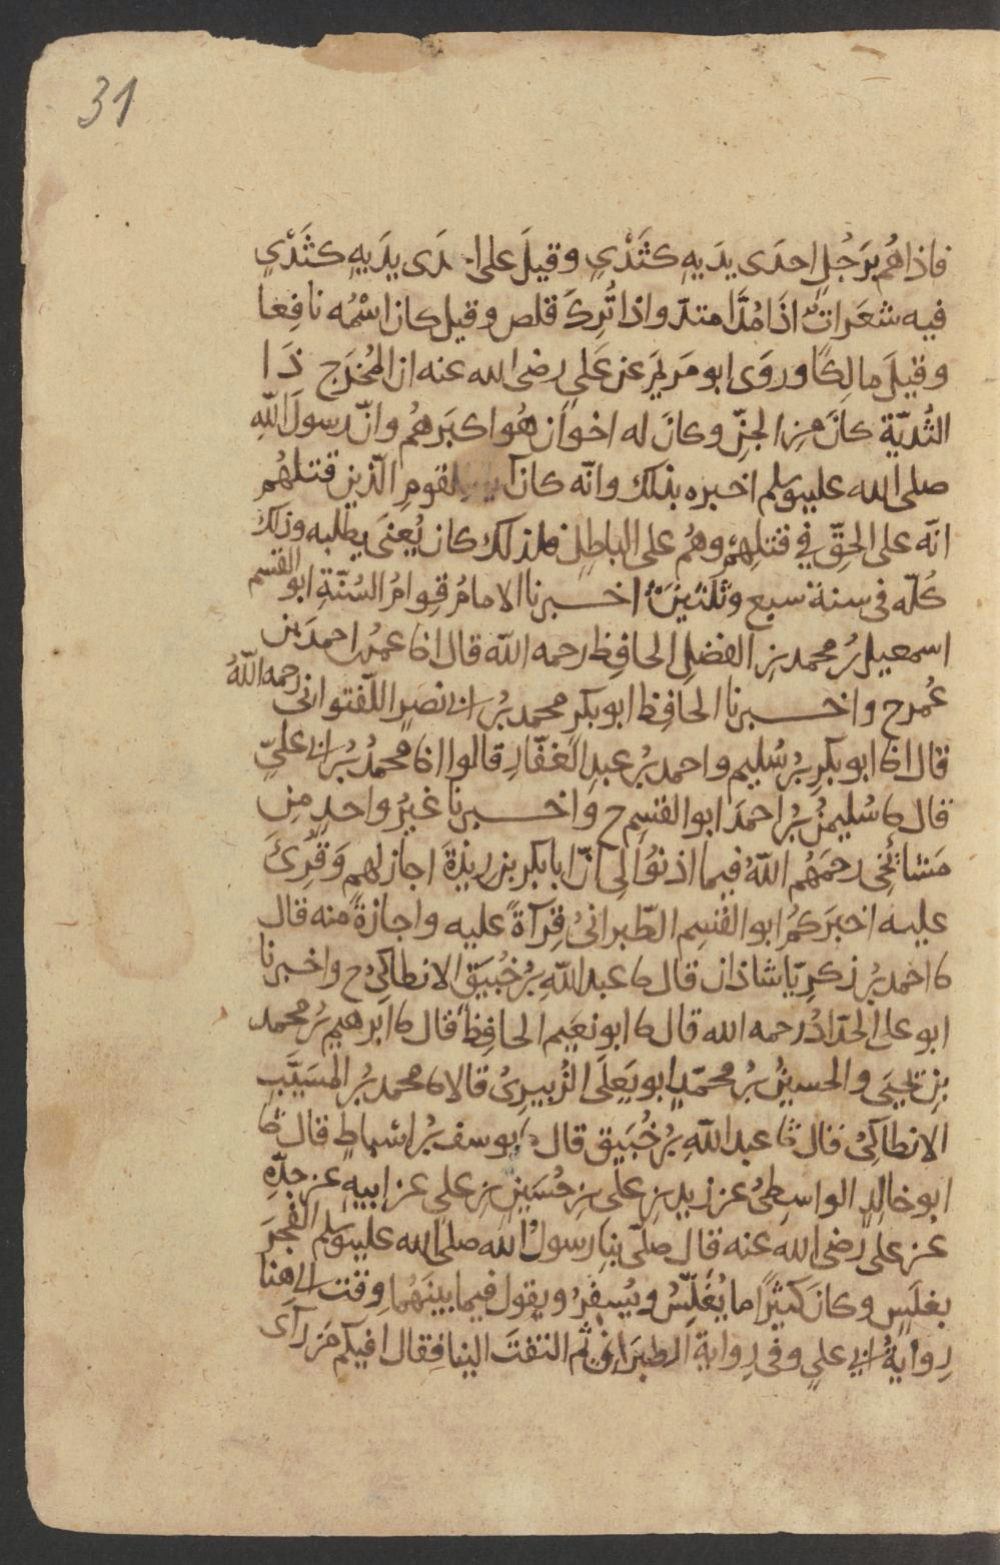 31
فاذا هُم برَجُلٍ احدَى يدَيهِ كثَدْيٍ وقيلَ على ا دَى يدَيهِ كثَدْيٍ
فيه شعَراتٌ اذَا مُدَّ امتدّ واذا تُرِكَ قلص وقيل كان اسْمُه نافِعا
وقيلَ مالِكًا ورَوَى ابو مَريَمَ عن عَلي رضى الله عنه ان المُخدَج ذَا
الثُديّة كانَ مِن الجنّ وكانَ له اخوان هُو اكبَرهُم وانّ رسولَ اللّهِ
صلى الله عليه وسلم اخبره بذلك وانّه كان للقومِ الّذين قتلهُم
انّه على الحقّ في قتلِهِم وهُم على الباطِل فلذلك كان يُعنَى بطلبه وذلك
كُلّه فى سنة سبع وثلثينَ اخبرنا الامامُ قِوامُ السُنّةِ ابو القسم
اسمعيل بنُ محمد بنِ الفضلِ الحافِظ رحمه اللّه قال انا عمرُ بن احمدَ بن
عُمر ح واخبرنا الحافِظ ابو بكرٍ محمد بنُ ابى نصرٍ اللّفتوانى رحمه اللّهُ
قال انا ابو بكرِ بنُ سُليم واحمد بنُ عبدِ الغفّارِ قالوا انا محمدُ بنُ ابى علىّ
قال نا سُليمنُ بنُ احمدَ ابو القسِم ح واخبرنا غيرُ واحدٍ مِن
مَشائخى رحمَهُم اللّهُ فيما اذنوُا لى انّ ابا بكر بن ريذةَ اجاز لهم وَقُرِئَ
عليه اخبرَكمُ ابو القسِم الطّبرانىُ قِرآةً عليه واجازةً منه قال
نا احمد بنُ زكرِيّا شاذان قال نا عبد اللّهِ بنُ خُبيَق الانطاكىُ ح واخبرنا
ابو على الحدّادُ رحمه الله قال نا ابو نعَيم الحافِظ قال نا ابرهيم بنُ محمد
بنِ يحيَى والحسينُ بنُ محمّدٍ ابو يَعلَى الزُبيرِىُ قالا نا محمد بنُ المسَيَّبِ
الانطاكِىُ قال نا عبد اللّهِ بنُ خُبَيق قال نا يوسف بنُ اسباطٍ قال نا
ابو خالِدٍ الواسِطِىُ عن زيد بنِ على بنِ حُسَينِ بنِ علي عن ابيهِ عن جدّهِ
عن على رضى الله عنه قال صلّى بنا رسولُ الله صلى الله عليه وسلم الفجرَ
بغلَسٍ وكانَ كثيرًا ما يُغَلِّسُ ويُسفِرُ ويقول فيما بينَهُما وقت الى هنا
رِوايةُ ابى علي وفى رِواية الطبرَانى ثم التفتَ الينا فقال افيكم مَن رآى